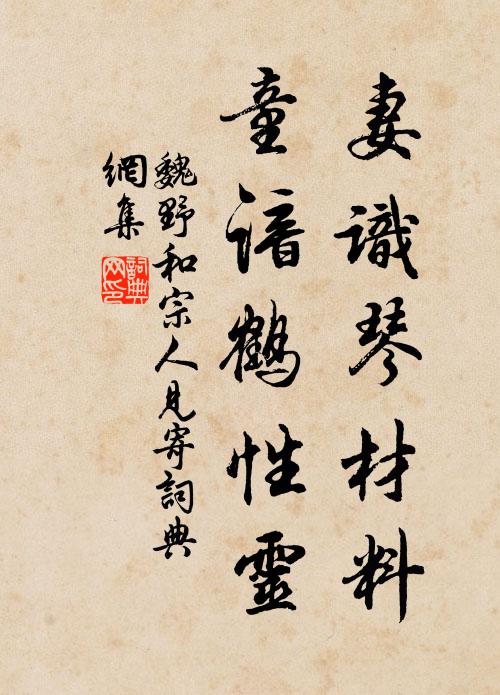 妻識琴材料
童諳鶴性靈
魏野和宗人見寄詞典
網集
詞典網印